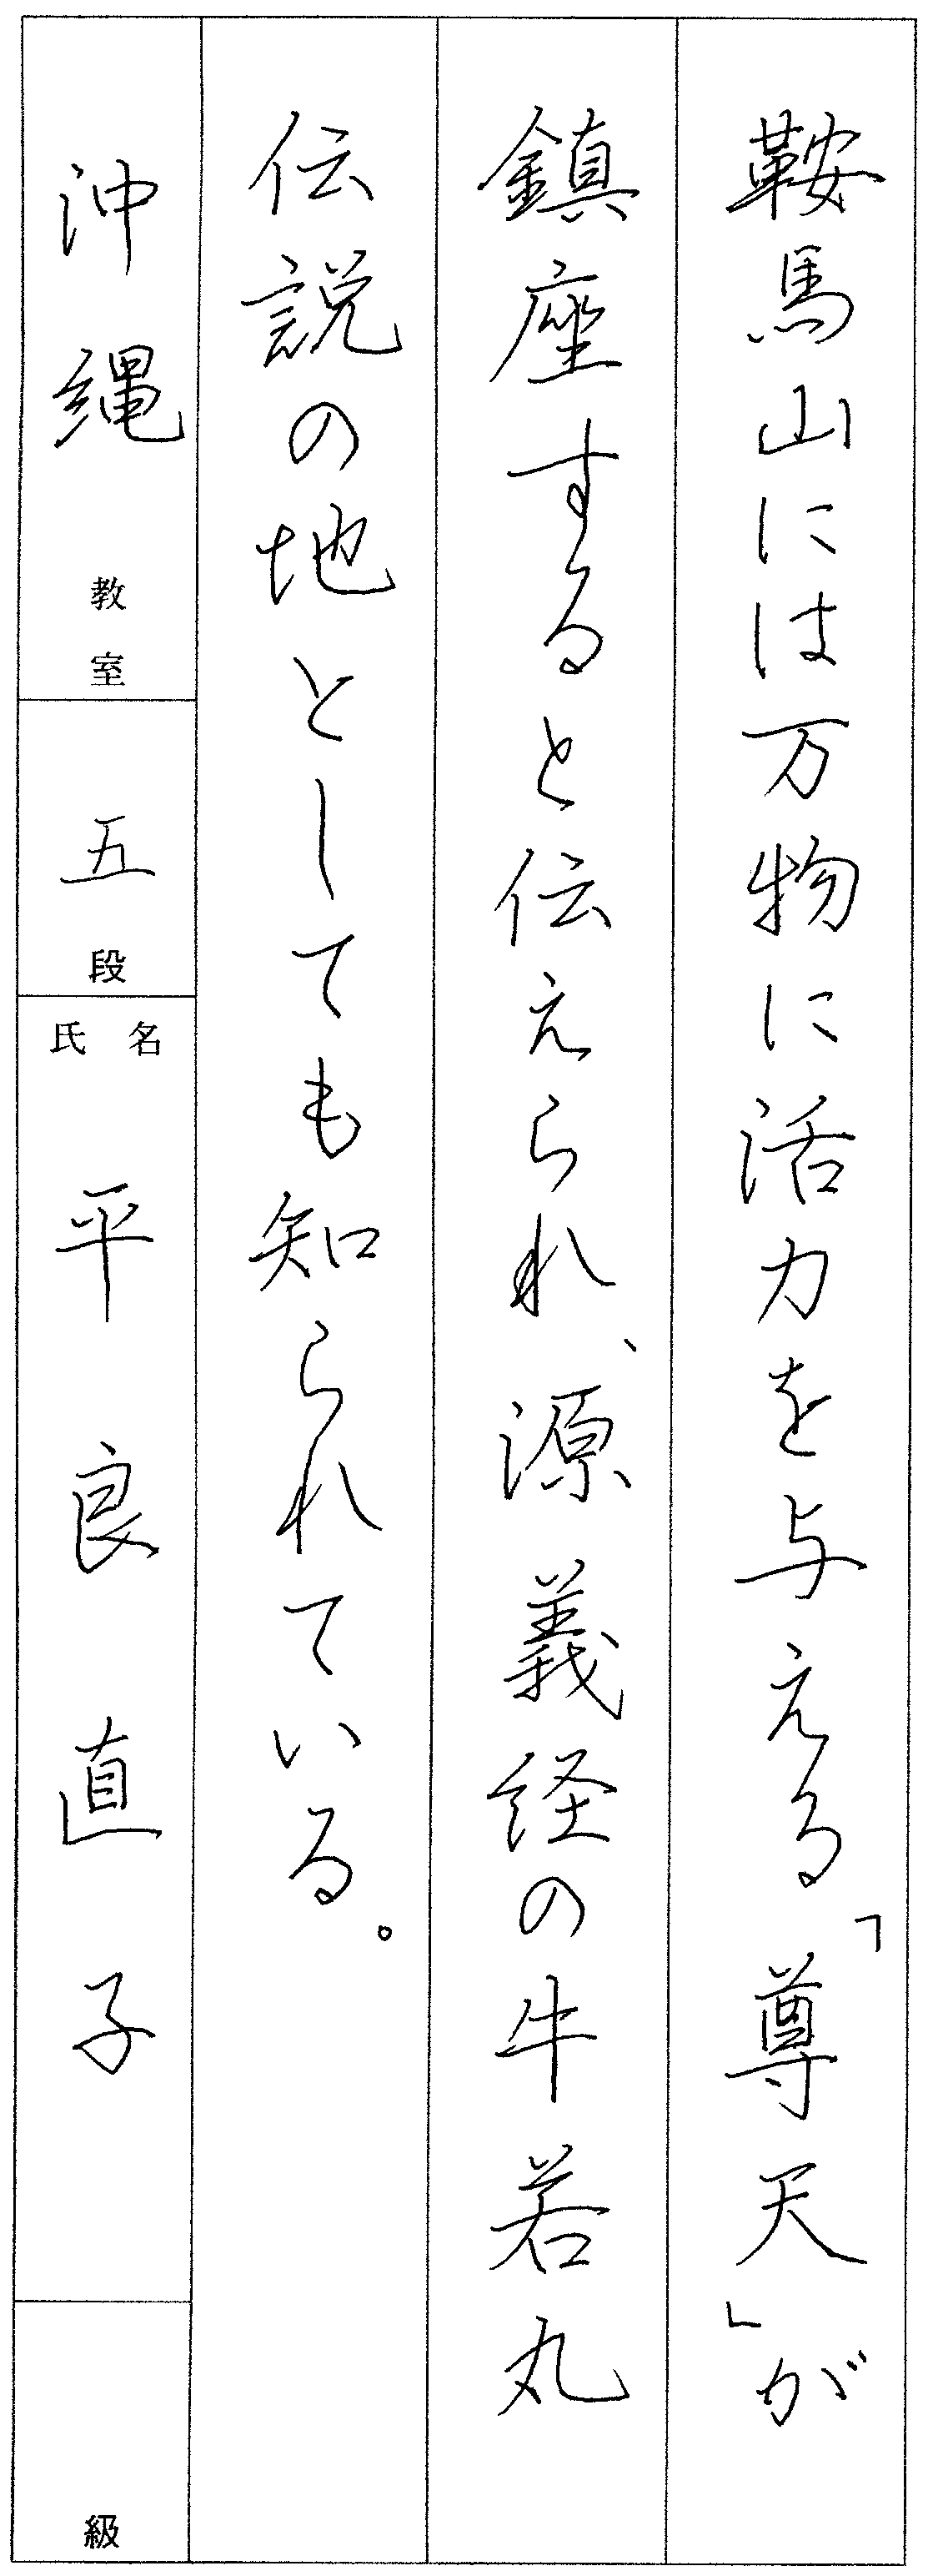 鞍馬山には万物に活力を与える「尊天」が
鎮座すると伝えられ、源義経の牛若丸
伝説の地としても知られている。
沖縄教室
五段
氏名 平良直子
級